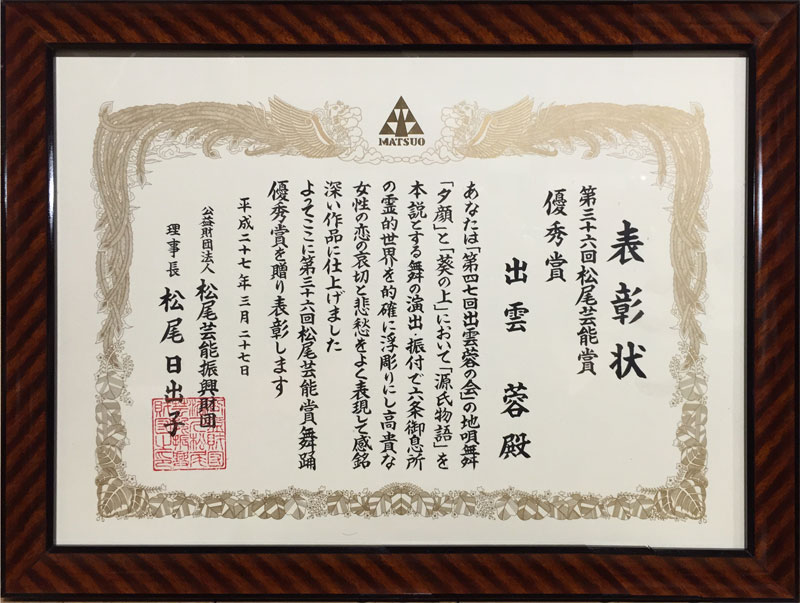 MATSUO
表彰状
第三十六回松尾芸能賞
優秀賞
出雲 蓉殿
あなたは「第四七回出雲蓉の会」の地唄舞
「夕顔」と「葵の上」において「源氏物語」を
本説とする舞の演出・振付で六条御息所
の霊的世界を的確に浮彫りにし高貴な
女性の恋の哀切と悲愁をよく表現して感銘
深い作品に仕上げました
よそここに第三十六回松尾芸能賞舞踊
優秀賞を贈り表彰します
平成二十七年三月二十七日
公益財団法人 松尾芸能振興財団
理事長 松尾日出子